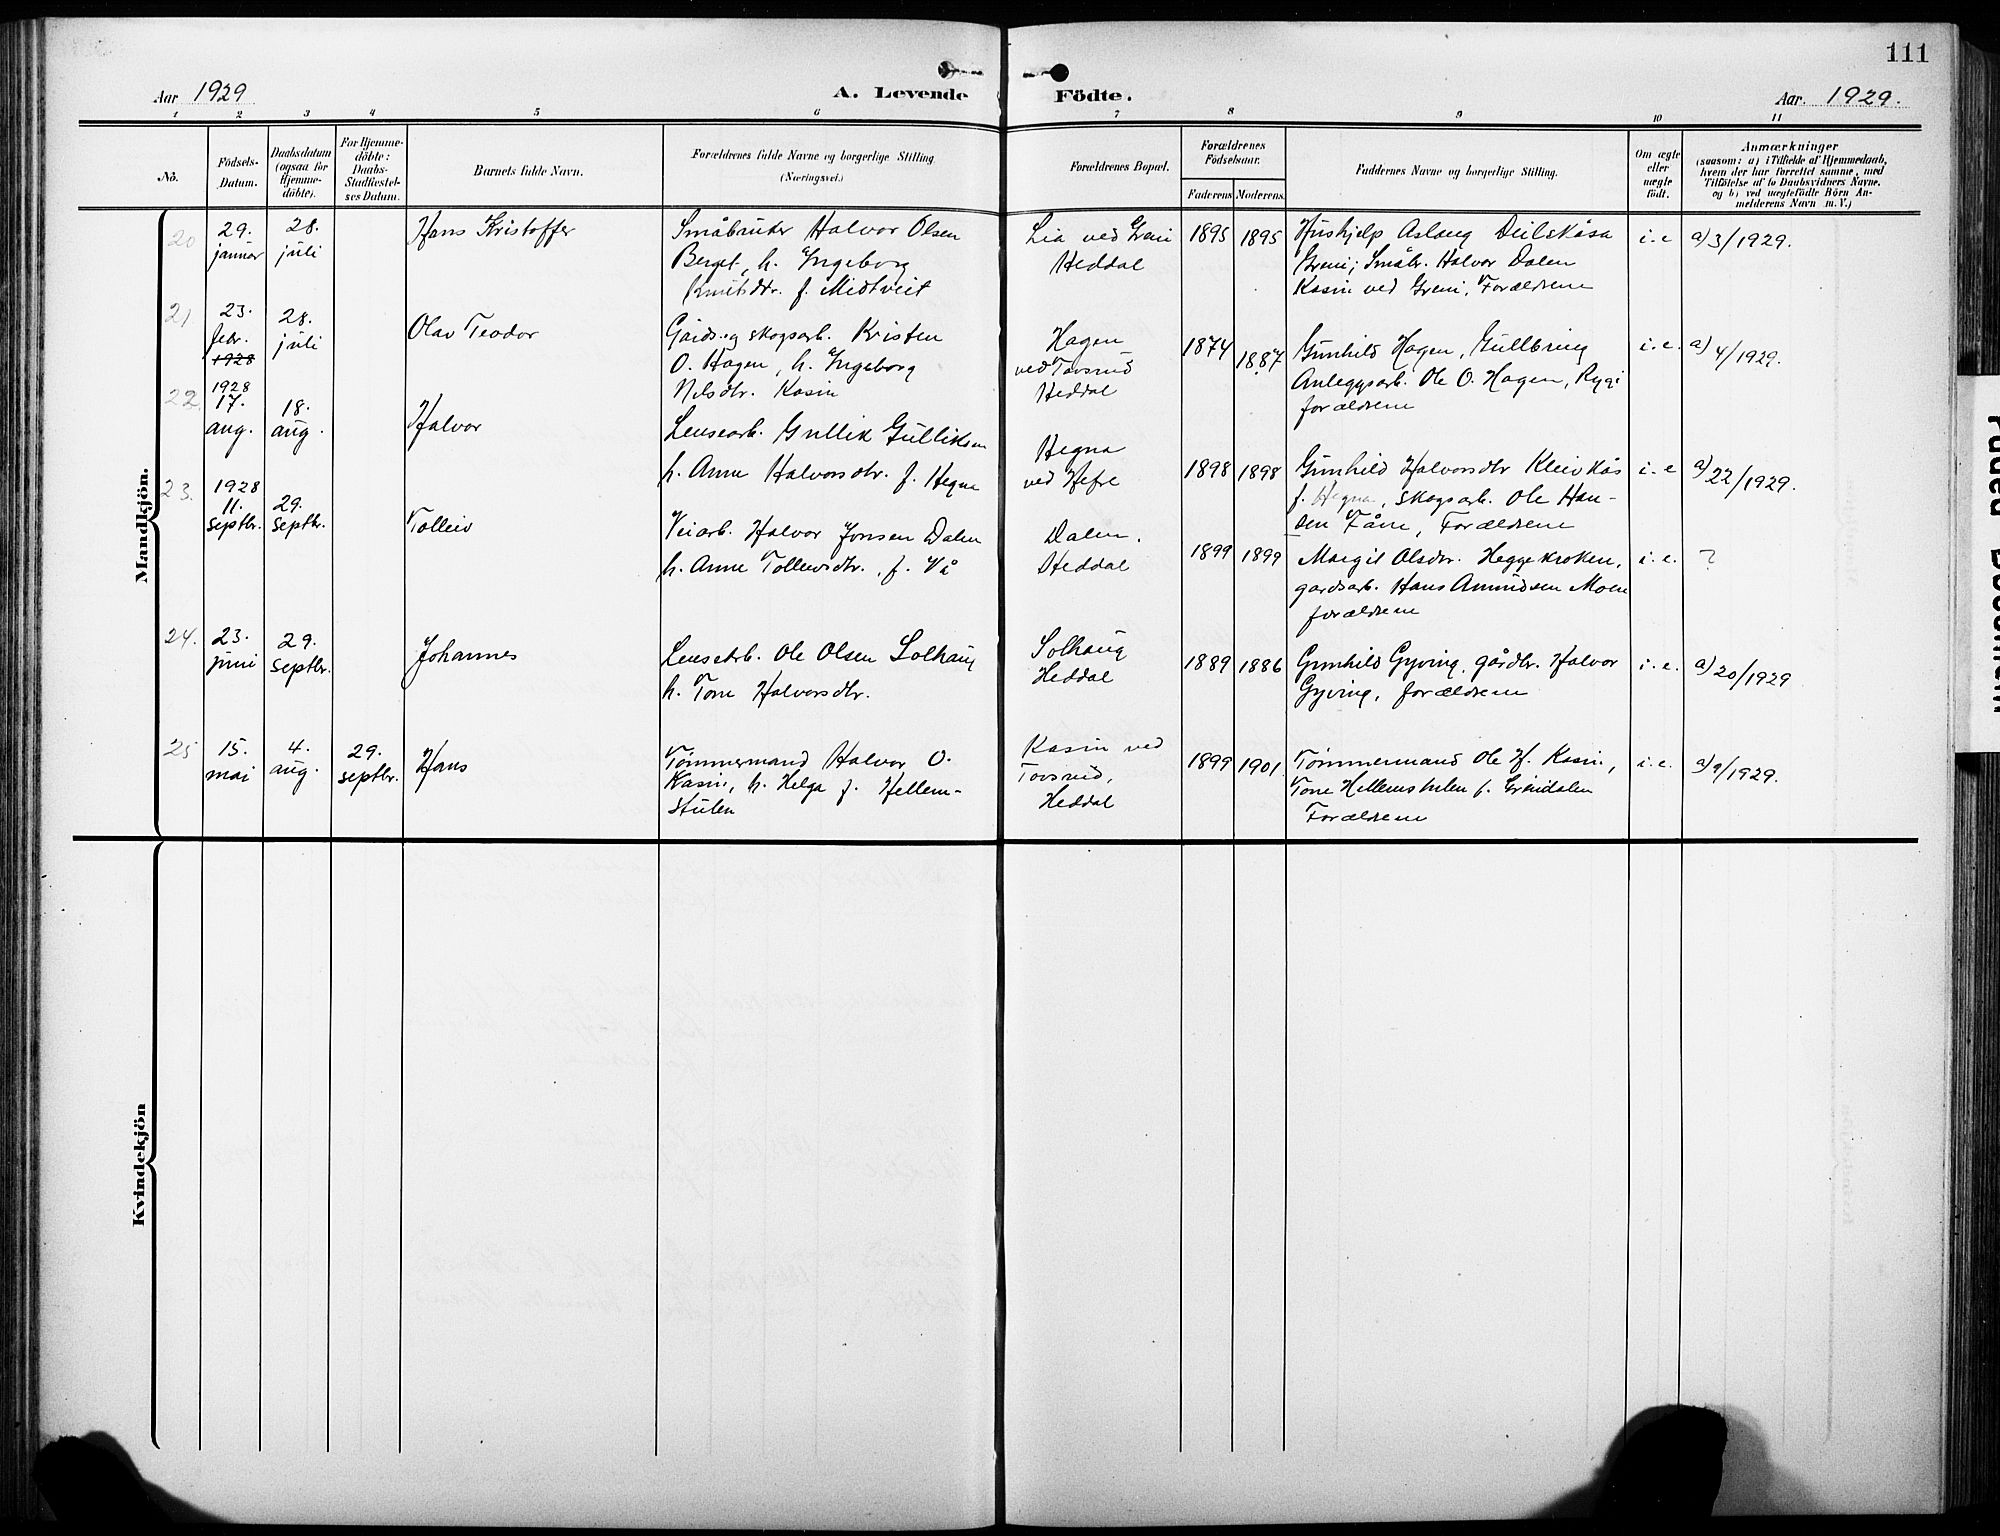 111
Aar 1929
A. Levende Födte.
Aar. 1929.
1 2 3 4 5 6 7 8 9 10 11
No.
Födsels-
Datum.
Daabsdatum
(ogsaa for
Hjemme-
döbte).
For Hjemme-
döbte:
Daabs-
Stadfæstel-
ses Datum.
Barnets fulde Navn.
Forældrenes fulde Navne og borgerlige Stilling
(Næringsvei.)
Forældrenes Bopæl.
Forældrenes
Födselsaar.
Faderens Moderens
Faddernes Navne og borgerlige Stilling.
Om ægte
eller
uægte
födt.
Anmærkninger
(saasom: a) i Tilfælde af Hjemmedaab,
hvem der har forrettet samme, med
Tilföielse af to Daabsvidners Navne,
og b) ved uægtefödte Börn An-
melderens Navn m. V.)
Mandkjön.
20
29.
januar
28.
juli
Hans Kristoffer
Småbruker Halvor Olsen
Berget, h. Ingeborg
Knutsdtr. f. Midtveit
Lia ved Greni
Heddal
1895 1895
Hushjelp Aslaug Deilskåsa
Greni; Småbr. Halvor Dalen
Kasin ved Greni, Forældrene
i. e
a) 3/1929.
21
23.
febr.
1928
28.
juli
Olav Teodor
Gårds og skogsarb. Kristen
O. Hagen, h. Ingeborg
Nilsdtr. Kasin
Hagen
ved Tovsrud
Heddal
1874 1887
Gunhild Hagen, Gullbring
Anleggsarb. Ole O. Hagen, Rygi
forældrene
i. e.
a) 4/1929.
22.
1928
17.
aug.
18.
aug.
Halvor
Lensearb. Gullik Gulliksen
h. Anne Halvorsdtr. f. Hegna
Hegna
ved Hefre
1898 1898
Gunhild Halvorsdtr Kleivkås
f. Hegna, skogsarb. Ole Han-
sen Fåne, Forældrene
i. e
a) 22/1929.
23.
1928
11.
septbr.
29.
septbr.
Tolleiv
Veiarb. Halvor Jonsen Dalen
h. Anne Tolleivsdtr. f. Vå
Dalen.
Heddal
1899 1899
Margit Olsdtr. Heggekroken,
gardsarb. Hans Amundsen Moen
forældrene
i. e.
?
24.
23.
juni
29.
septbr.
Johannes
Lensearb. Ole Olsen Solhaug
h. Tone Halvorsdtr.
Solhaug
Heddal
1889 1886
Gunhild Gyving, gårdbr. Halvor
Gyving, forældrene
i. e.
a) 20/1929
25
15.
mai
4.
aug.
29.
septbr.
Hans
Tømmermand Halvor O.
Kasin, h. Helga f. Hellem-
stulen
Kasin ved
Tovsrud,
Heddal
1899 1901
Tømmermand Ole H. Kasin,
Tone Hellemstulen f. Grindalen
Forældrene
i. e.
a) 9/1929.
Kvindekjön